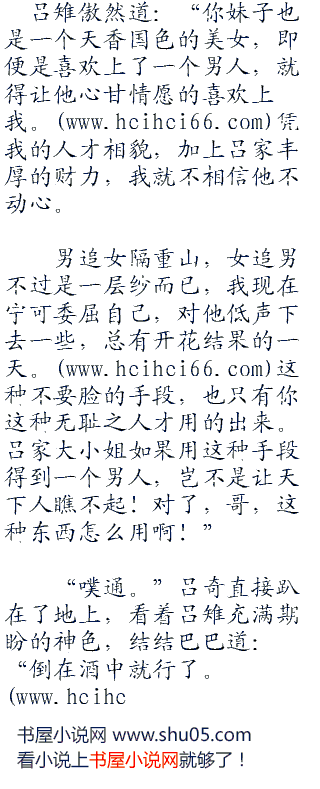 吕雉傲然道：“你妹子也
是一个天香国色的美女，即
便是喜欢上了一个男人，就
得让他心甘情愿的喜欢上
我。(www.hcihci66.com)凭
我的人才相貌，加上吕家丰
厚的财力，我就不相信他不
动心。
男追女隔重山，女追男
不过是一层纱而已，我现在
宁可委屈自己，对他低声下
去一些，总有开花结果的一
天。(www.hcihci66.com)这
种不要脸的手段，也只有你
这种无耻之人才用的出来。
吕家大小姐如果用这种手段
得到一个男人，岂不是让天
下人瞧不起！对了，哥，这
种东西怎么用啊！”
“噗通。”吕奇直接趴
在了地上，看着吕雉充满期
盼的神色，结结巴巴道：
“倒在酒中就行了。
(www.hcihc
书屋小说网 www.shu05.com
看小说上书屋小说网就够了！